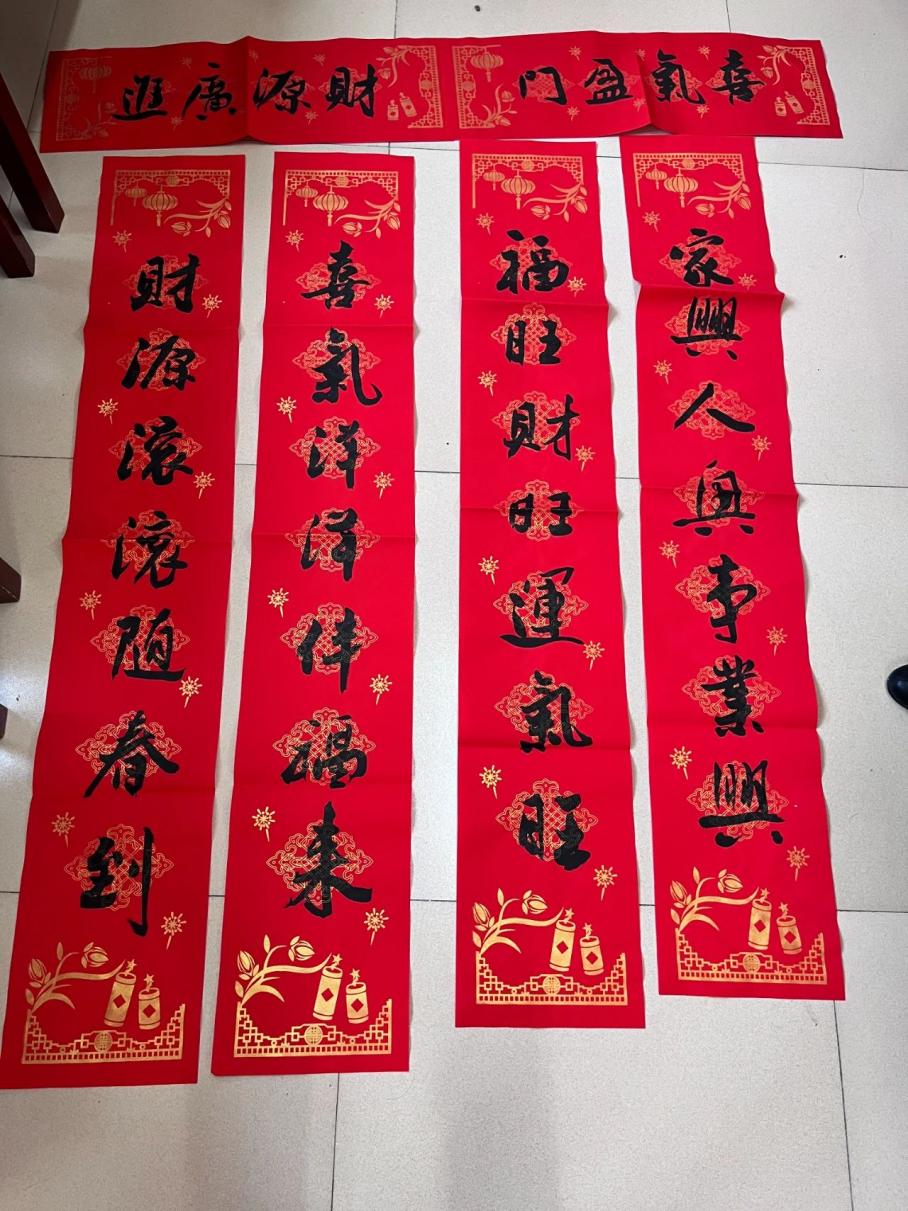 喜氣盈门
財源廣進
家興人興事業興
福旺財旺運氣旺
喜氣洋洋伴福来
財源滚滚随春到